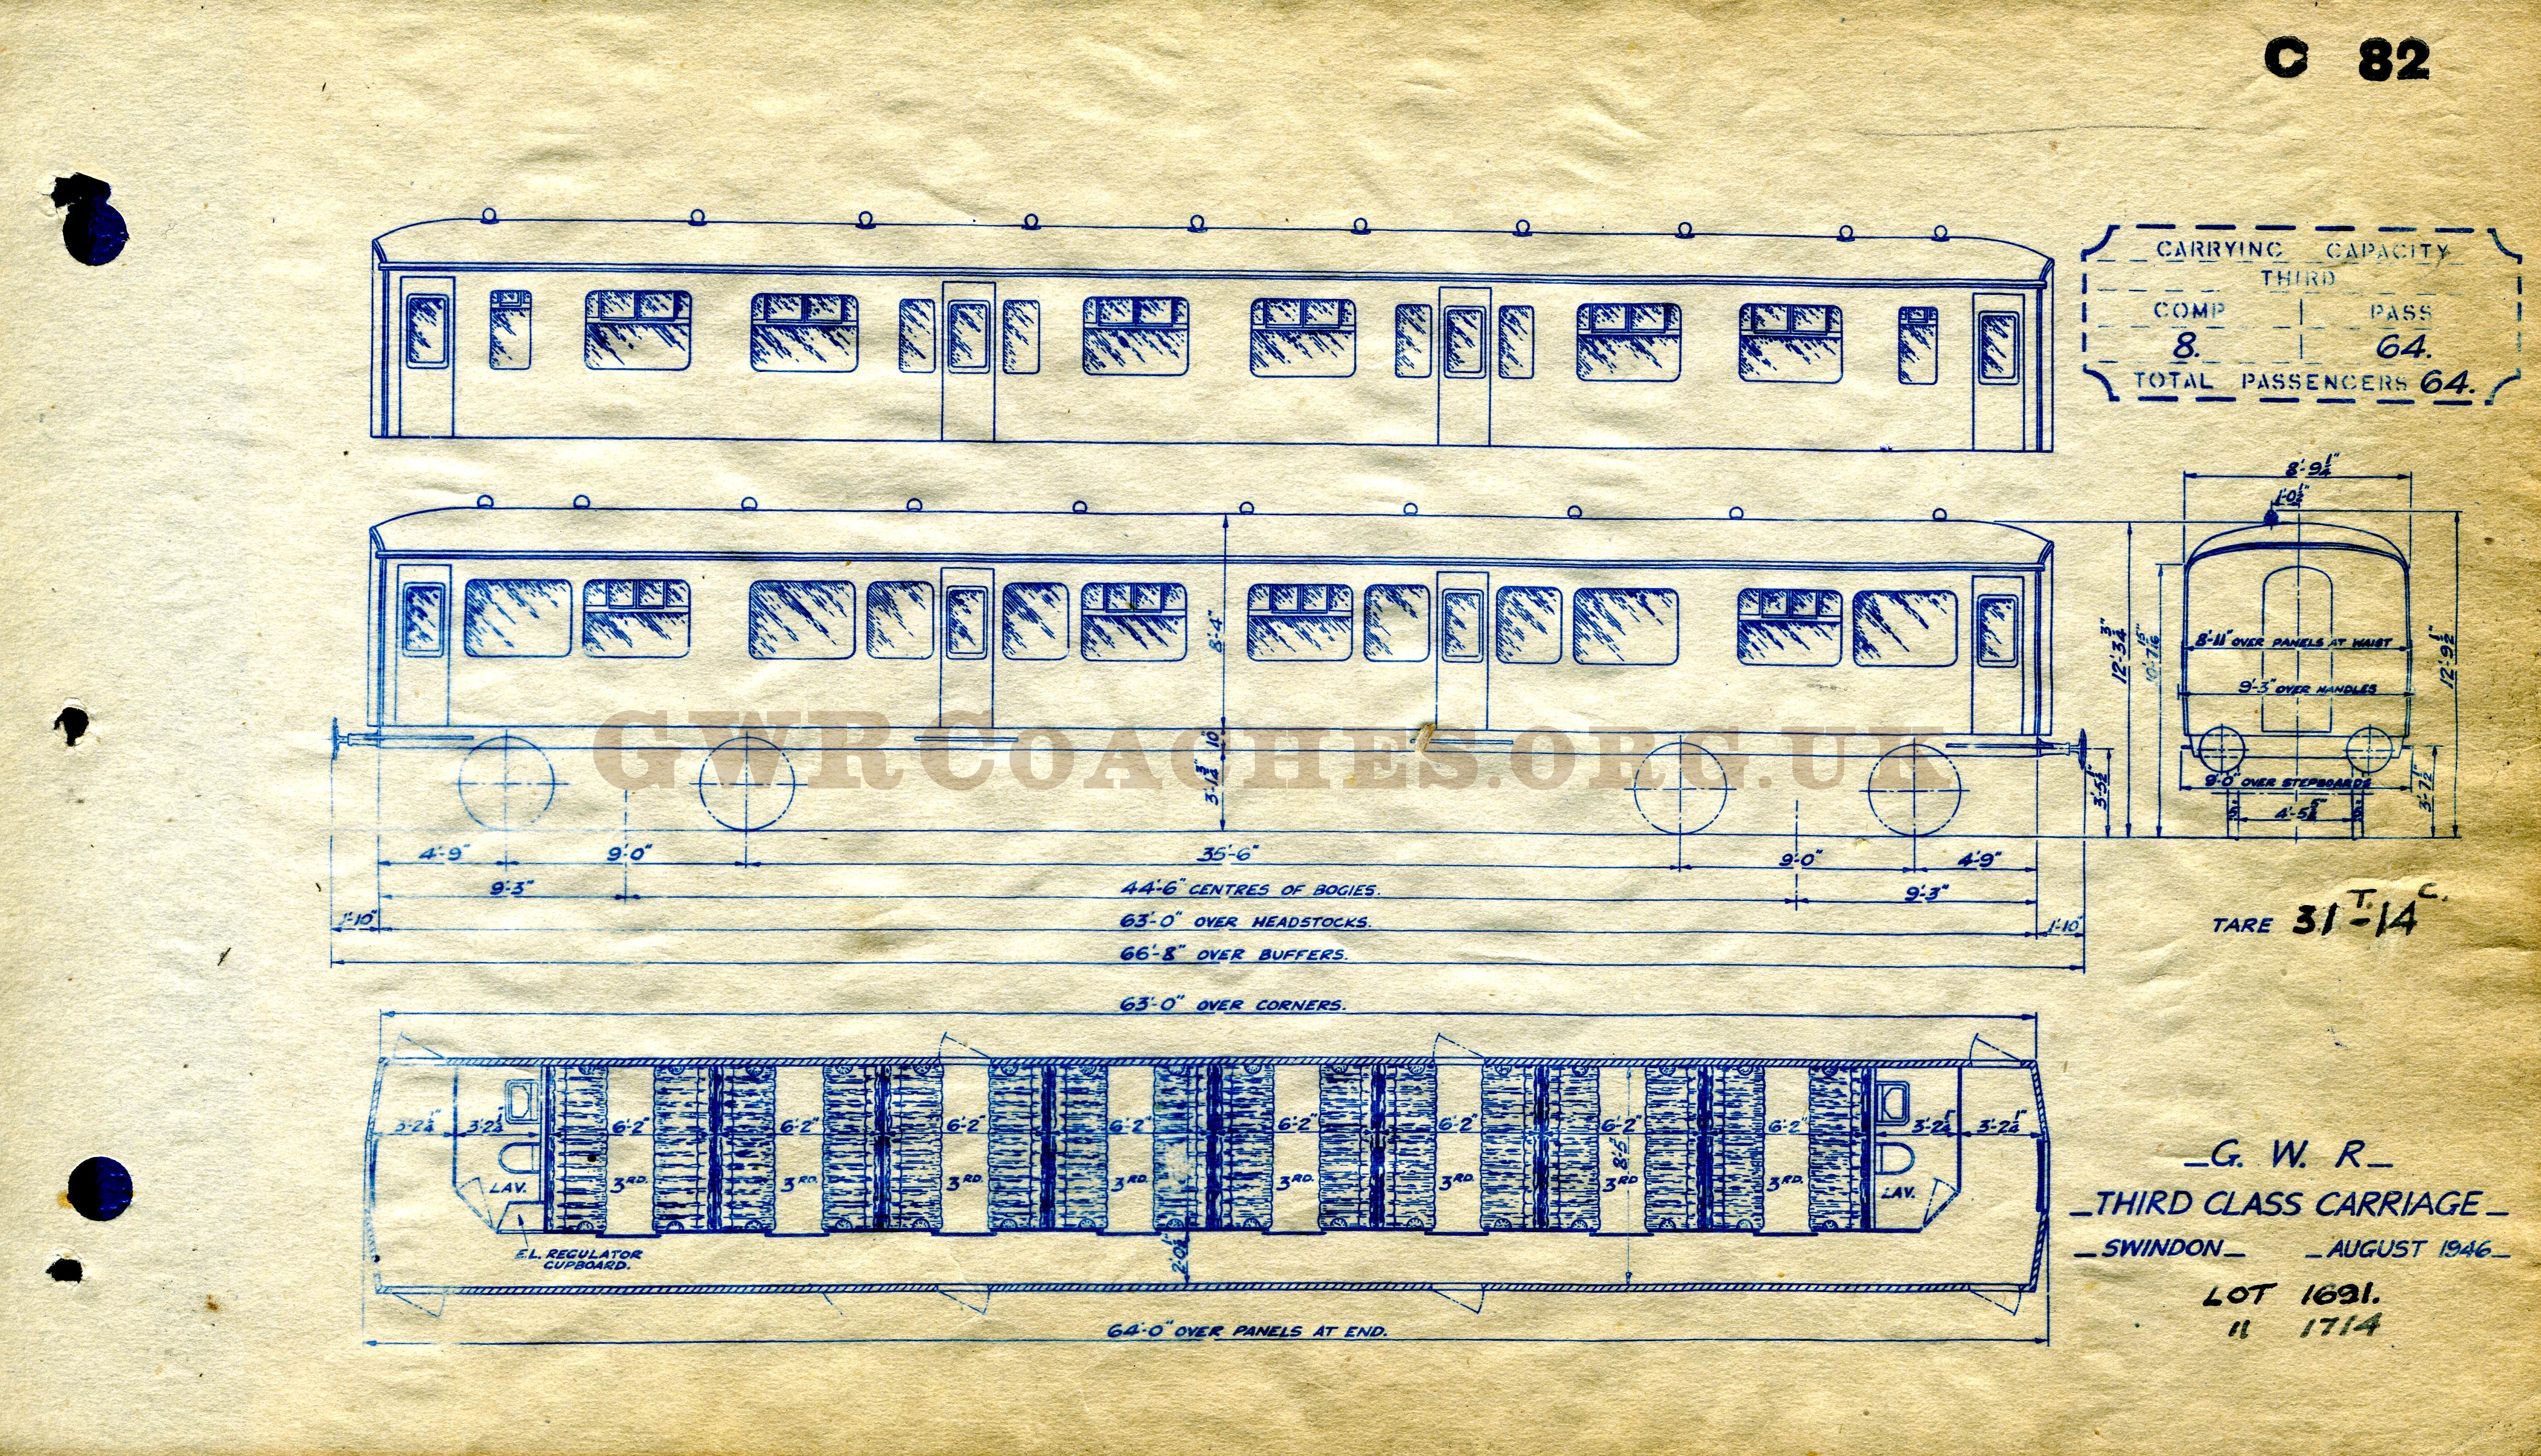 C 82
CARRYING CAPACITY
THIRD
COMP PASS
8. 64.
TOTAL PASSENGERS 64.
8'-9¼"
1'-0½"
8'-4"
10"
3'-1¾"
12'-3¾"
10'-7 15/16"
12'-9½"
8'-11" OVER PANELS AT WAIST
9'-3" OVER HANDLES
9'-0" OVER STEPBOARDS
3'-5½"
3'-7½"
4'-5⅝"
GWRCOACHES.ORG.UK
4'-9" 9'-0" 35'-6" 9'-0" 4'-9"
9'-3" 44'-6" CENTRES OF BOGIES. 9'-3"
1'-10" 63'-0" OVER HEADSTOCKS. 1'-10"
66'-8" OVER BUFFERS.
TARE 31T.-14C.
63'-0" OVER CORNERS.
3'-2¼" 3'-2¼" 6'-2" 6'-2" 6'-2" 6'-2" 6'-2" 6'-2" 6'-2" 6'-2" 3'-2¼" 3'-2¼"
8'-5"
LAV. 3RD. 3RD. 3RD. 3RD. 3RD. 3RD. 3RD 3RD. LAV.
E.L. REGULATOR
CUPBOARD.
2'-0½"
64'-0" OVER PANELS AT END.
G. W. R
THIRD CLASS CARRIAGE
SWINDON AUGUST 1946
LOT 1691.
" 1714